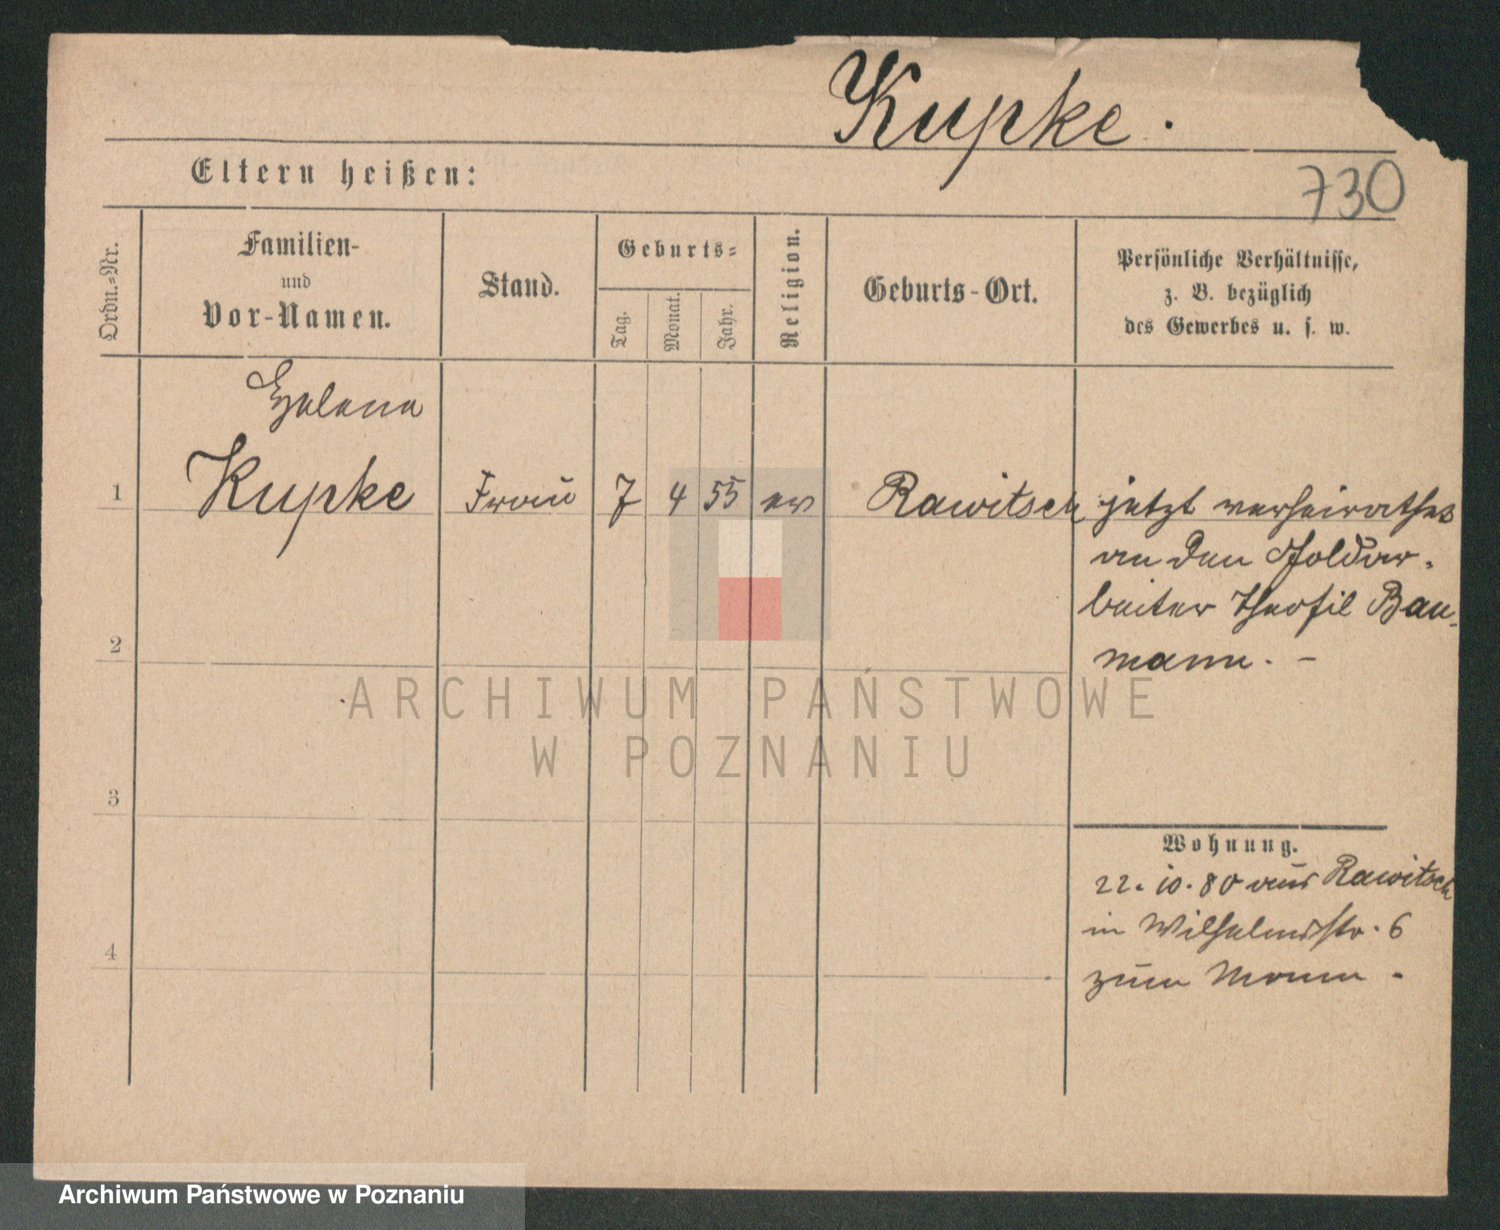 Kupke.
Eltern heißen:
730
Ordn.-Nr.
Familien-
und
Vor-Namen.
Stand.
Geburts-
Tag.
Monat.
Jahr.
Religion.
Geburts-Ort.
Persönliche Verhältnisse,
z. B. bezüglich
des Gewerbes u. s. w.
Helena
1 Kupke Frau 7 4 55 ev Rawitsch jetzt verheirathet
an den Goldar-
beiter Theofil Bau-
2
mann. -
ARCHIWUM PAŃSTWOWE
W POZNANIU
3
Wohnung.
22. 10. 80 aus Rawitsch
in Wilhelmsstr. 6
4
zum Mann -
Archiwum Państwowe w Poznaniu